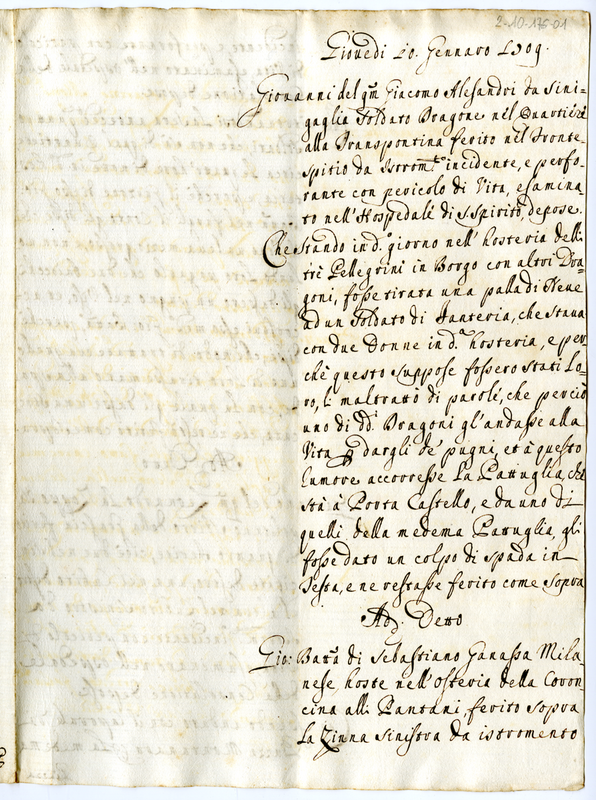 2-10-175-01
Giovedi 10. Gennaro 1709.
Giovanni del qm̃ Giacomo Alesandri da Sini=
gaglia Soldato Dragone nel Quartiere
alla Transpontina ferito nel Fronte=
spitio da Istromto incidente, e perfo=
rante con pericolo di Vita, esamina
to nell'Hospedale di S. Spirito, depose.
Che stando in do giorno nell'hosteria delli
trè Pellegrini in Borgo con altri Dra=
goni, fosse tirata una palla di Neve
ad un Soldato di Fanteria, che stava
con due Donne in da hosteria, e per
chè questo suppose fossero stati Lo=
ro, li maltrattò di parole, che perciò
uno di dd. Dragoni gl'andasse alla
Vita p dargli de pugni, et à questo
rumore accorresse la Pattuglia, che
stà à Porta Castello, e da uno di
quelli della medema Pattuglia, gli
fosse dato un colpo di spada in
Testa, e ne restasse ferito come sopra
Ad. Detto
Gio: Battã di Sebastiano Ganassa Mila=
nese, hoste nell'Osteria della Coron=
cina alli Pantani, ferito sopra
la Zinna sinistra da istromento